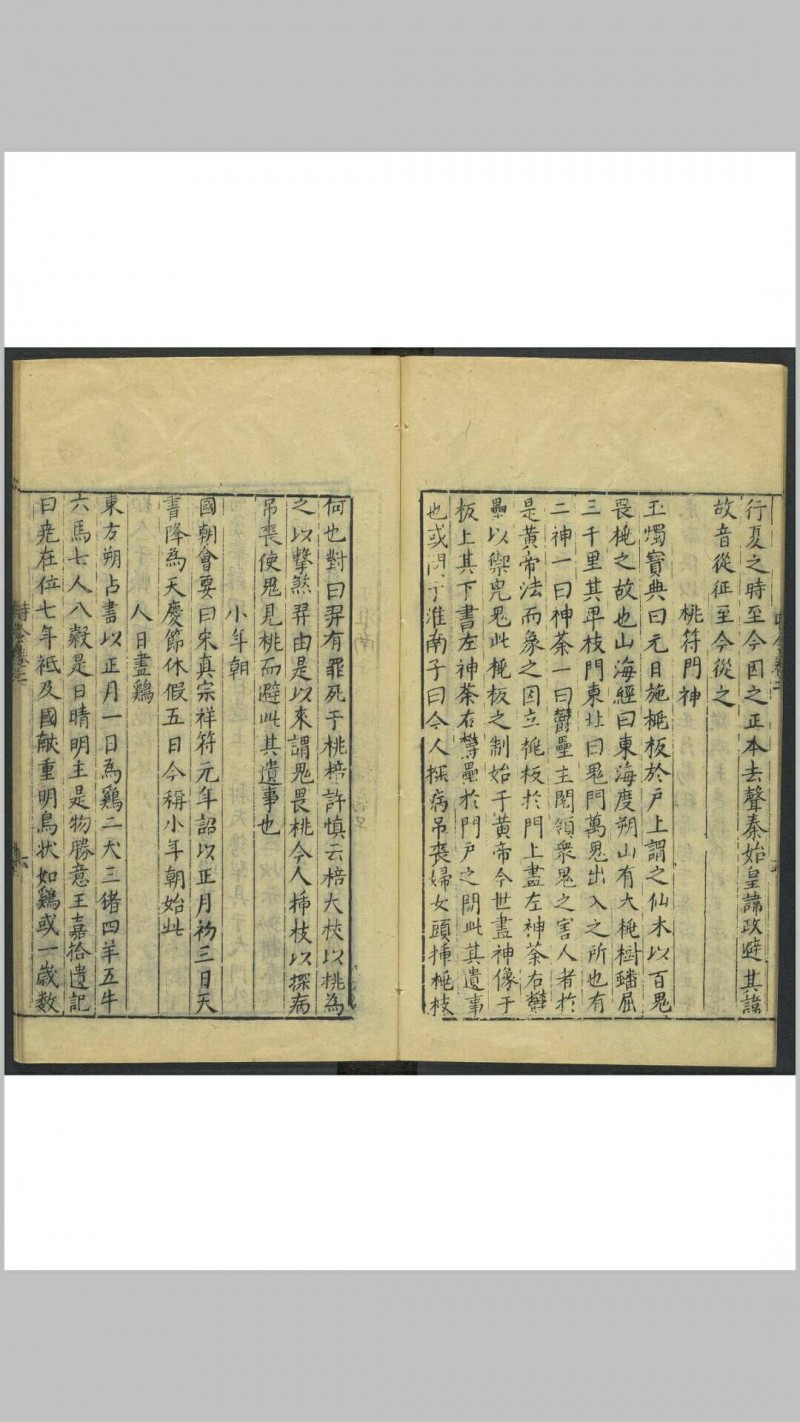 行夏之時至今因之正本去聲秦始皇諱政避其諱
故音從征至今從之
桃符門神
玉燭寶典曰元日施桃板於戶上謂之仙木以百鬼
畏桃之故也山海經曰東海度朔山有大桃樹蟠屈
三千里其卑枝門東北曰鬼門萬鬼出入之所也有
二神一曰神荼一曰欎壘主閱領衆鬼之害人者於
是黃帝法而象之因立桃板於門上畫左神荼右欎
壘以禦兇鬼此桃板之制始于黃帝今世畫神像于
板上其下書左神荼右欎壘於門戶之間此其遺事
也或問于淮南子曰今人探病吊喪婦女頭揷桃枝
何也對曰羿有罪死于桃棓許慎云棓大杖以桃為
之以擊煞羿由是以來謂鬼畏桃今人揷枝以探病
吊喪使鬼見桃而避此其遺事也
小年朝
國朝會要曰宋真宗祥符元年詔以正月初三日天
書降為天慶節休假五日今稱小年朝始此
人日畫鷄
東方朔占書以正月一日為鷄二犬三猪四羊五牛
六馬七人八穀是日晴明主是物勝意王嘉拾遺記
曰堯在位七年祗及國献重明鳥状如鷄或一歲数